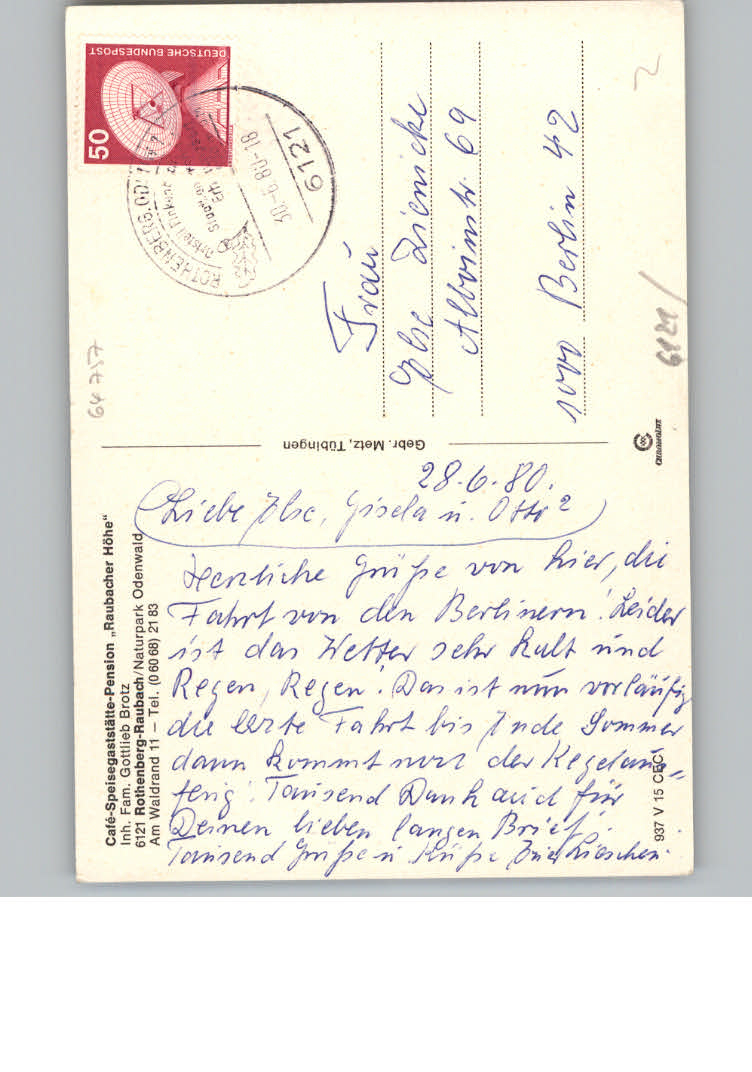 Café-Speisegaststätte-Pension „Raubacher Höhe“
Inh. Fam. Gottlieb Brotz
6121 Rothenberg-Raubach/Naturpark Odenwald
Am Waldrand 11 – Tel. (0 60 68) 21 83
28.6.80.
Liebe Ilse, Gisela u. Otto?
Herzliche Grüße von hier, die
Fahrt von den Berlinern! Leider
ist das Wetter sehr kalt und
Regen, Regen! Das ist nun vorläufig
die letzte Fahrt bis Ende Sommer
dann kommt noch der Kegelaus=
flug! Tausend Dank auch für
Deinen lieben langen Brief!
Tausend Grüße u. Küße Eure Lieschen.
937 V 15 CEC
Gebr. Metz, Tübingen
CHROMOLUX
DEUTSCHE BUNDESPOST
50
ROTHENBERG, ODENW
Ortsteil Finkenb
30.-6.80-18
6121
Frau
Ilse Zienicke
Alboinstr. 69
1000 Berlin 42
64757
6121/
2